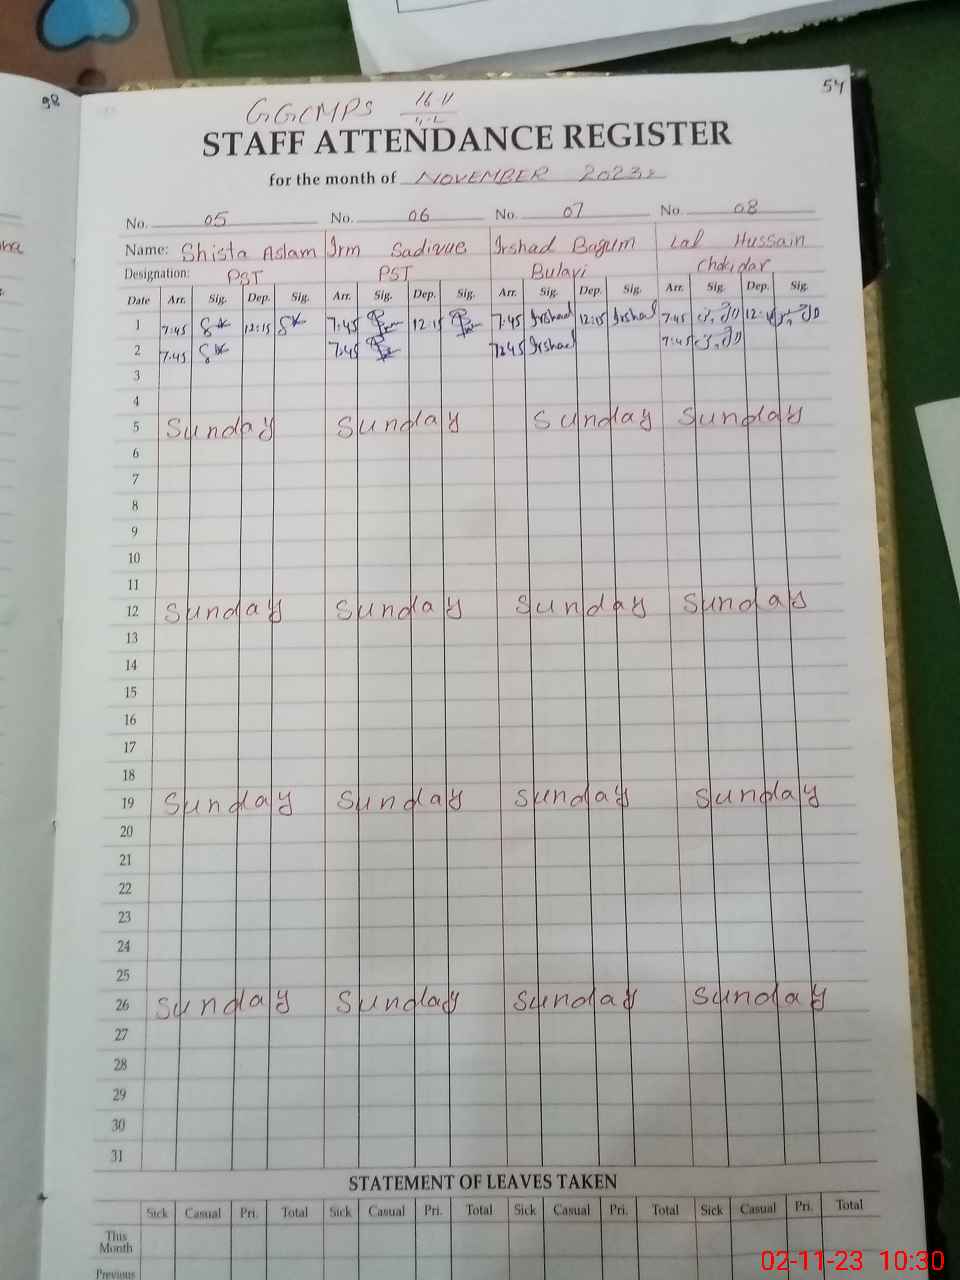 98
54
GGCMPS 16 11
STAFF ATTENDANCE REGISTER
for the month of NOVEMBER 2023
No. 05 No. 06 No. 07 No. 08
Name: Shista Aslam Irm Sadique Irshad Bagum Lal Hussain
Designation: PST PST Bulavi Chokidar
Date Arr. Sig. Dep. Sig. Arr. Sig. Dep. Sig. Arr. Sig. Dep. Sig. Arr. Sig. Dep. Sig.
1 7:45 12:15 7:45 12:15 7:45 Irshad 12:15 Irshad 7:45
2 7:45 7:45 7:45 Irshad 7:45
3
4
5 Sunday Sunday Sunday Sunday
6
7
8
9
10
11
12 Sunday Sunday Sunday Sunday
13
14
15
16
17
18
19 Sunday Sunday Sunday Sunday
20
21
22
23
24
25
26 Sunday Sunday Sunday Sunday
27
28
29
30
31
STATEMENT OF LEAVES TAKEN
Sick Casual Pri. Total Sick Casual Pri. Total Sick Casual Pri. Total Sick Casual Pri. Total
This
Month
Previous
02-11-23 10:30